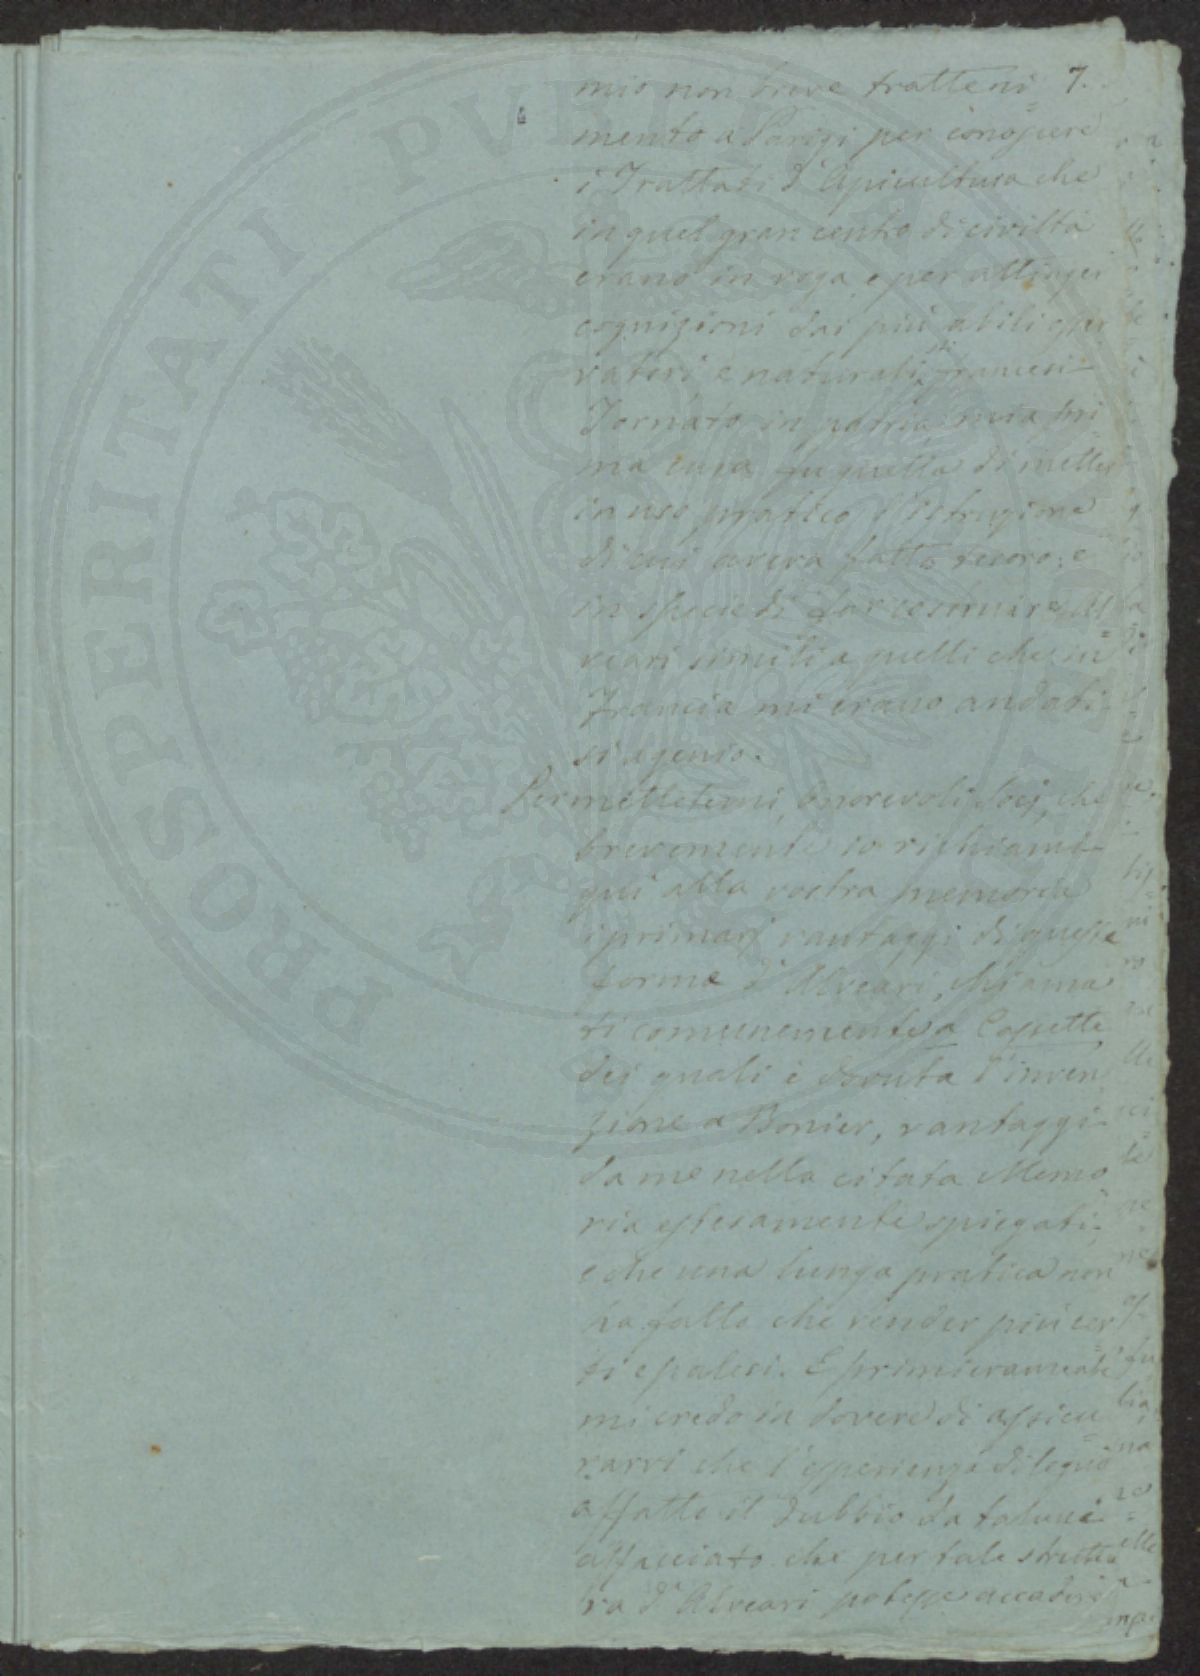 7.
mio non breve tratteni=
mento a Parigi per conoscere
i Trattati d'Apicultura che
in quel gran centro di civiltà
erano in voga e per attinger
cognizioni dai più abili osser
vatori e naturalisti francesi
Tornato in patria, mia pri=
ma cura fu quella di metter
in uso pratico l'istruzione
di cui aveva fatto tesoro; e
in specie di far costruire Al=
veari simili a quelli che in
Francia mi erano andati
sì a genio.
Permettetemi, onorevoli Socj, che
brevemente io richiami
qui alla vostra memoria
i primarj vantaggi di queste
forme d'Alveari, chiama
ti comunemente a Cassette
dei quali è dovuta l'inven
zione a Bonier, vantaggi
da me nella citata Memo
ria estesamente spiegati,
e che una lunga pratica non
ha fatto che render più cer=
ti e palesi. E primieramente
mi credo in dovere di assicu=
rarvi che l'esperienza dileguò
affatto il dubbio da taluni
affacciato che per tale struttu
ra d'Alveari potesse accadere
PROSPERITATI